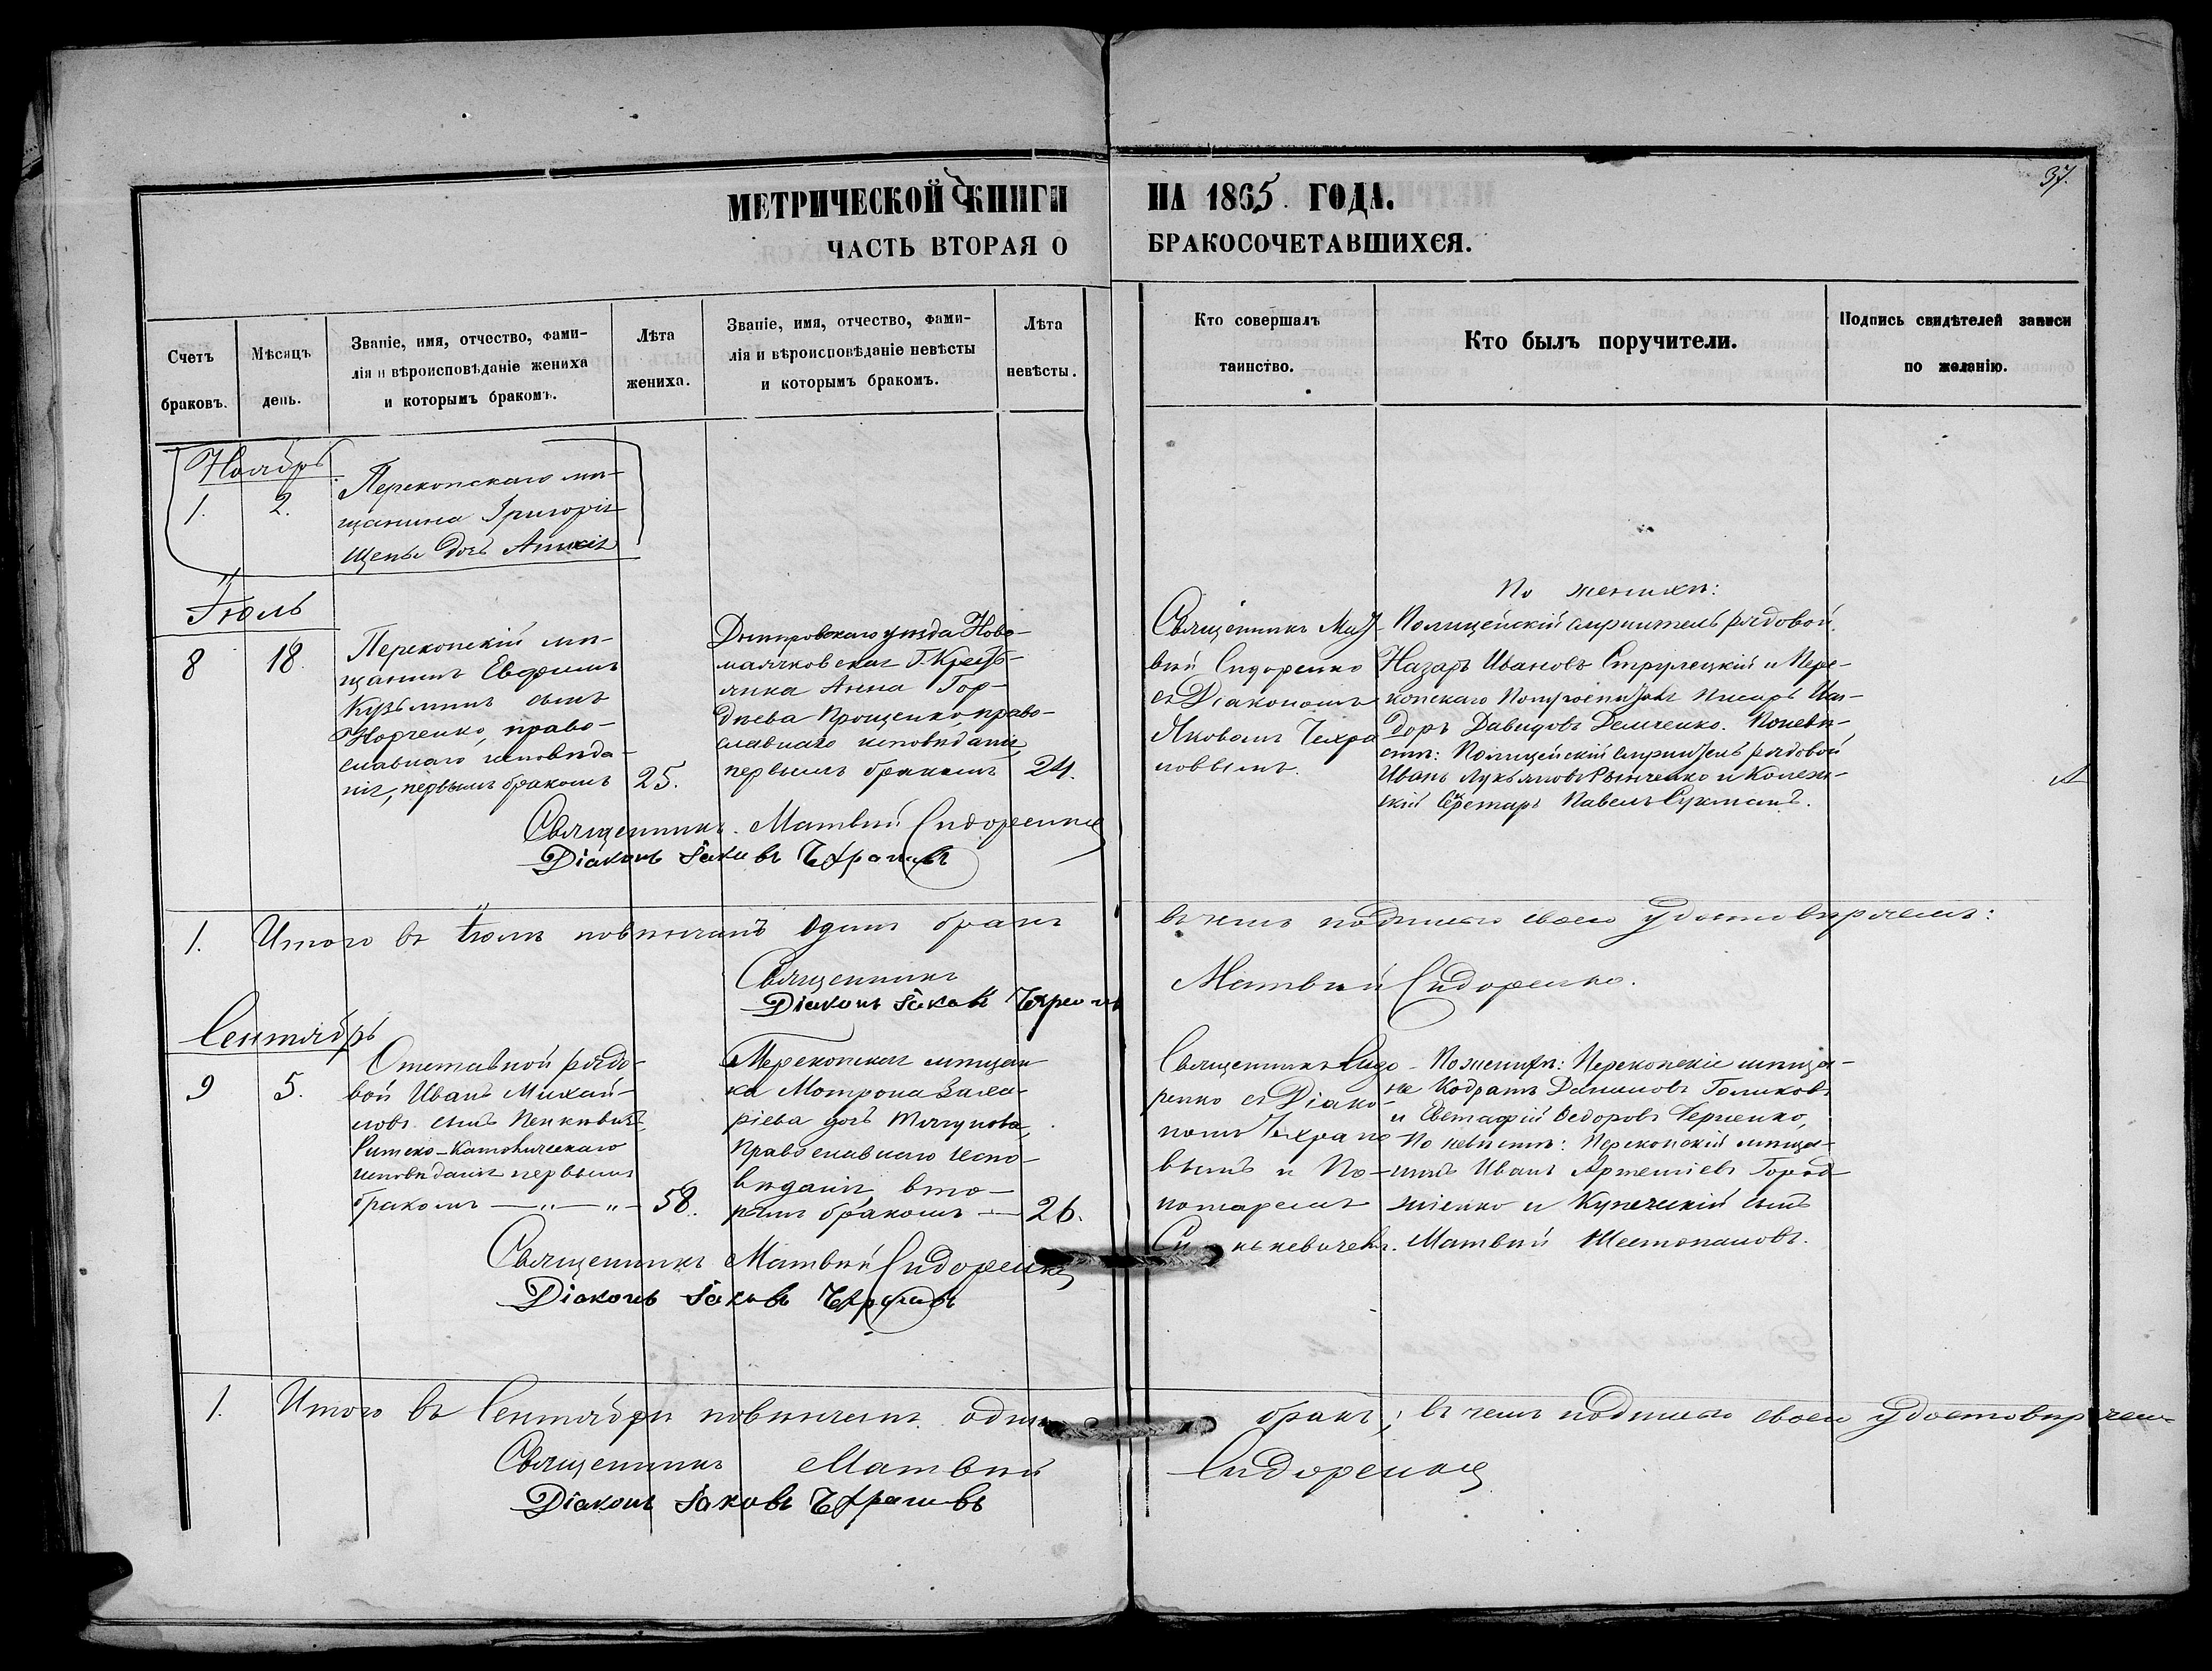 37.
МЕТРИЧЕСКОЙ КНИГИ НА 1865 ГОДА.
ЧАСТЬ ВТОРАЯ О БРАКОСОЧЕТАВШИХСЯ.
Счетъ браковъ.
Мѣсяцъ день.
Званіе, имя, отчество, фами-
лія и вѣроисповѣданіе жениха
и которымъ бракомъ.
Лѣта
жениха.
Званіе, имя, отчество, фами-
лія и вѣроисповѣданіе невѣсты
и которымъ бракомъ.
Лѣта
невѣсты.
Кто совершалъ
таинство.
Кто былъ поручители.
Подпись свидѣтелей записи
по желанію.
Ноябрь
1. 2.
Перекопскаго мѣ-
щанина Григорія
дочь
Іюль
8 18.
Перекопскій мѣ-
щанинъ Евфимъ
Кузьминъ сынъ
право-
славнаго исповѣда-
нія, первымъ бракомъ
25.
Днѣпровскаго уѣзда Ново-
маячковская Г. Кресть-
янка Анна Гор-
дѣева Прощенко, право-
славнаго исповѣданія,
первымъ бракомъ
24.
Священникъ Мат-
вѣй Сидоренко
съ Діакономъ
Яковомъ Чехра
новымъ.
По женихѣ:
Полицейскій служитель рядовой
Назаръ Ивановъ Струлецкій и Пере-
копскаго писарь Иси-
доръ Давидовъ Демченко. По невѣ-
стѣ: Полицейскій служитель рядовой
Иванъ Лукьяновъ и Колеж-
скій Секретарь Павелъ
Священникъ Матвѣй Сидоренко
Діаконъ Іаковъ Чехрановъ
1. Итого въ Іюлѣ повѣнчанъ одинъ бракъ въ чемъ подписью своею удостовѣряемъ:
Священникъ Матвѣй Сидоренко.
Діаконъ Іаковъ Чехрановъ
Сентябрь
9 5.
Отставной рядо-
вой Иванъ Михай-
ловъ сынъ
Римско-Католическаго
исповѣданія первымъ
бракомъ —„—„—
58.
Перекопская мѣщан
ка Мотрона Заха-
ріева дочь
Православнаго испо-
вѣданія, вто-
рымъ бракомъ —
26.
Священникъ Сидо-
ренко съ Діако-
номъ Чехрано
вымъ и По-
номаремъ
По женихѣ: Перекопскіе мѣща-
не Кодратъ Даниловъ Голиковъ
и Евстафій Ѳедоровъ Черненко,
По невѣстѣ: Перекопскій мѣща-
нинъ Иванъ Артеміевъ Город-
ніенко и Купеческій сынъ
Матвѣй Шестопаловъ.
Священникъ Матвѣй Сидоренко
Діаконъ Іаковъ Чехрановъ
1. Итого въ Сентябрѣ повѣнчанъ одинъ бракъ; въ чемъ подписью своею удостовѣряемъ
Священникъ Матвѣй Сидоренко
Діаконъ Іаковъ Чехрановъ